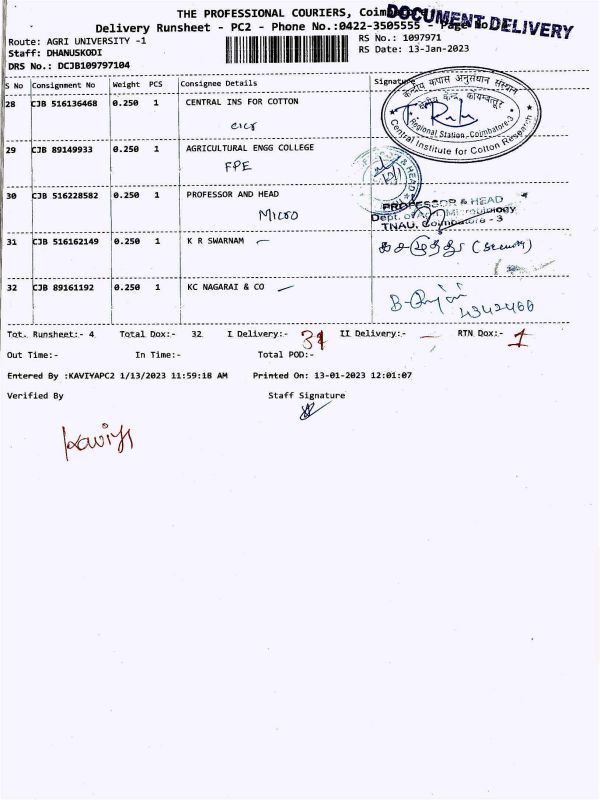 THE PROFESSIONAL COURIERS,
DOCUMENT DELIVERY
Delivery Runsheet - PC2 - Phone No.:0422-3505555 - Page No
Route: AGRI UNIVERSITY -1
RS No.: 1097971
Staff: DHANUSKODI
RS Date: 13-Jan-2023
DRS No.: DCJB109797104
S No Consignment No Weight PCS Consignee Details Signature
28 CJB 516136468 0.250 1 CENTRAL INS FOR COTTON
CICR
केन्द्रीय कपास अनुसंधान संस्थान
क्षेत्रीय केन्द्र, कोयम्बत्तूर
Regional Station, Coimbatore-3
Central Institute for Cotton Research
29 CJB 89149933 0.250 1 AGRICULTURAL ENGG COLLEGE
FPE
30 CJB 516228582 0.250 1 PROFESSOR AND HEAD
MICRO
PROFESSOR & HEAD
Dept. of Microbiology
TNAU, Coimbatore - 3
31 CJB 516162149 0.250 1 K R SWARNAM
32 CJB 89161192 0.250 1 KC NAGARAI & CO
Tot. Runsheet:- 4 Total Dox:- 32 I Delivery:- 31 II Delivery:- — RTN Dox:- 1
Out Time:- In Time:- Total POD:-
Entered By :KAVIYAPC2 1/13/2023 11:59:18 AM Printed On: 13-01-2023 12:01:07
Verified By Staff Signature